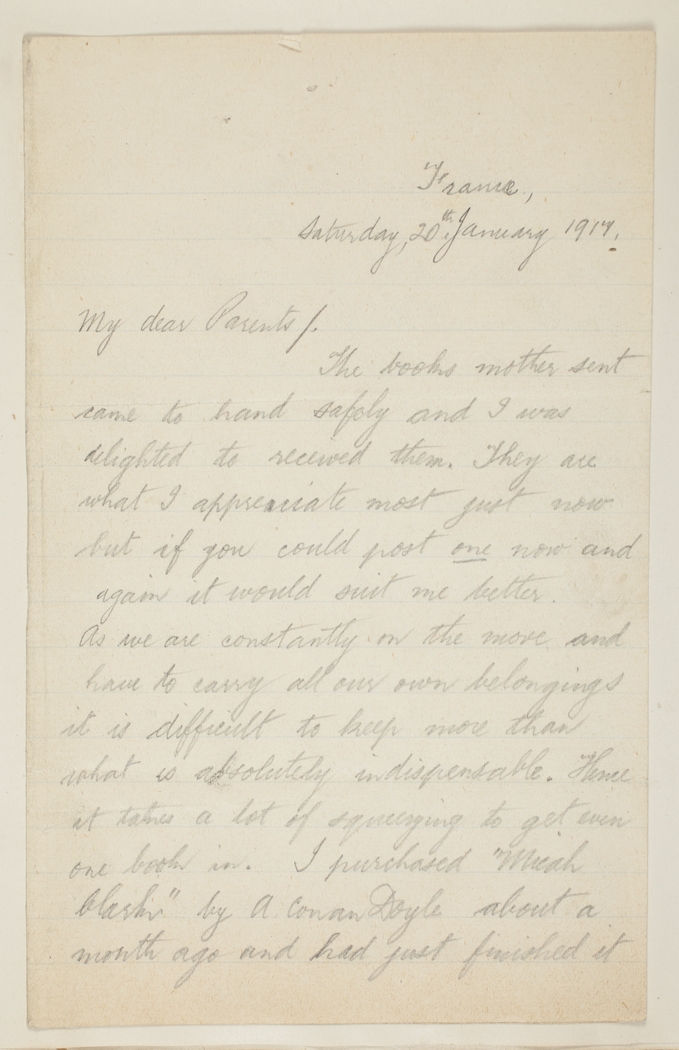 France,
Saturday, 20th January 1917.
My dear Parents/.
The books mother sent
came to hand safely and I was
delighted to received them. They are
what I appreciate most just now
but if you could post one now and
again it would suit me better.
As we are constantly on the move and
have to carry all our own belongings
it is difficult to keep more than
what is absolutely indispensable. Hence
it takes a lot of squeezing to get even
one book in. I purchased "Micah
Clarke" by A. Conan Doyle about a
month ago and had just finished it